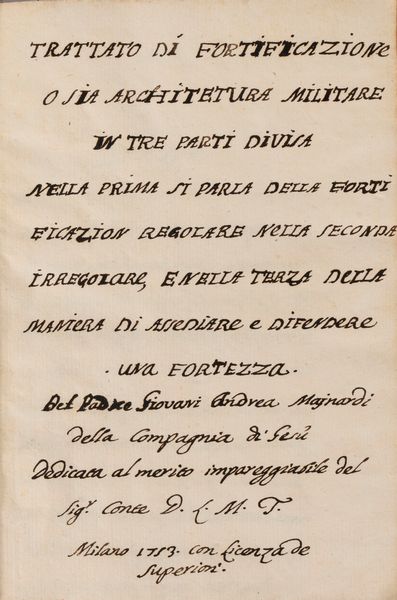 TRATTATO DI FORTIFICAZIONE
O SIA ARCHITETURA MILITARE
IN TRE PARTI DIVISA
NELLA PRIMA SI PARLA DELLA FORTI
FICAZION REGOLARE NELLA SECONDA
IRREGOLARE, E NELLA TERZA DELLA
MANIERA DI ASSEDIARE e DIFENDERE
. UNA FORTEZZA .
Del Padre Giovani Andrea Majnardi
della Compagnia di Gesù
Dedicata al merito impareggiabile del
Sig.r Conte D. L. M. T.
Milano 1753. con Licenza de
Superiori.